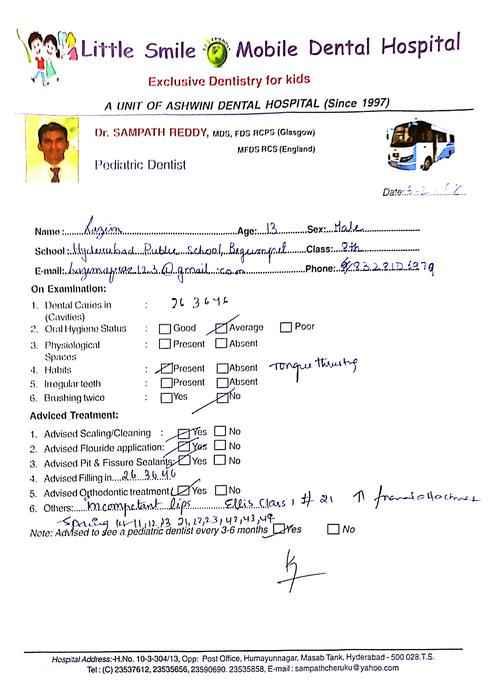 Little Smile Mobile Dental Hospital
Exclusive Dentistry for kids
A UNIT OF ASHWINI DENTAL HOSPITAL (Since 1997)
Dr. SAMPATH REDDY, MDS, FDS RCPS (Glasgow)
MFDS RCS (England)
Pediatric Dentist
Date:
Name: Age: 13 Sex: Male
School: Hyderabad Public School, Begumpet Class: 8th
E-mail: @gmail.com Phone:
On Examination:
1. Dental Caries in (Cavities) : 26 36 46
2. Oral Hygiene Status : Good Average Poor
3. Physiological Spaces : Present Absent
4. Habits : Present Absent Tongue thrusting
5. Irregular teeth : Present Absent
6. Brushing twice : Yes No
Adviced Treatment:
1. Advised Scaling/Cleaning : Yes No
2. Advised Flouride application: Yes No
3. Advised Pit & Fissure Sealants: Yes No
4. Advised Filling in 26 36 46
5. Advised Orthodontic treatment Yes No
6. Others: Incompetent lips Ellis Class 1 # 21
Spacing
Note: Advised to see a pediatric dentist every 3-6 months Yes No
Hospital Address:-H.No. 10-3-304/13, Opp: Post Office, Humayunnagar, Masab Tank, Hyderabad - 500 028.T.S.
Tel : (C) 23537612, 23535656, 23590690. 23535858, E-mail : sampathcheruku@yahoo.com